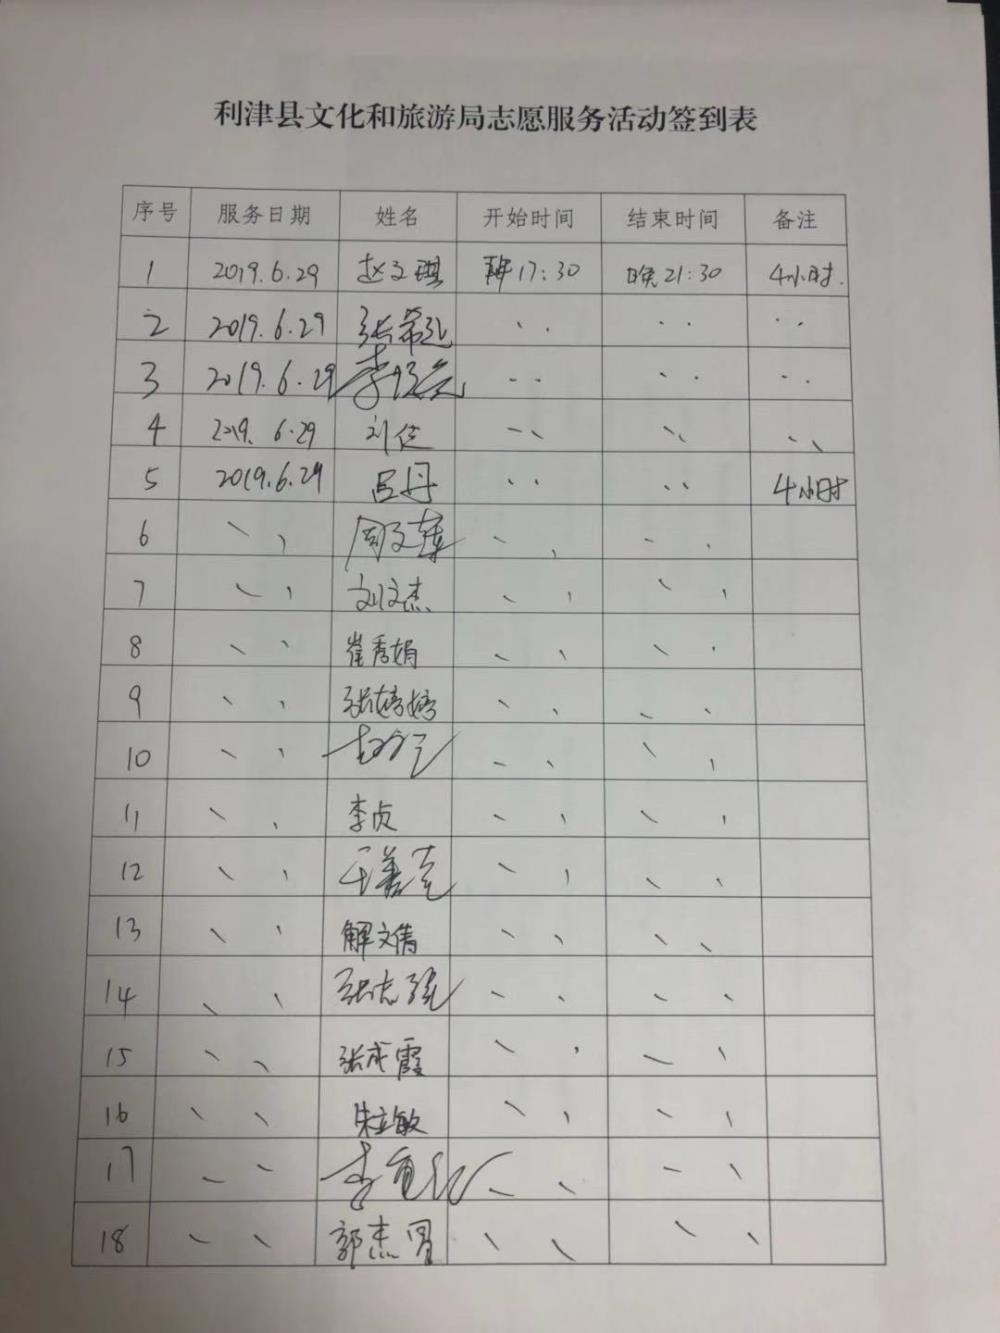 利津县文化和旅游局志愿服务活动签到表
序号 服务日期 姓名 开始时间 结束时间 备注
1 2019.6.29 赵文琪 17:30 晚21:30 4小时.
2 2019.6.29 张希
3 2019.6.29 李
4 2019. 6.29 刘佳
5 2019.6.29 吕丹 4小时
6 周文
7 刘文杰
8 崔秀娟
9 张婷婷
10
11 李贞
12 王
13 解文倩
14 张志强
15 张成霞
16 朱立敏
17 李
18 郭杰